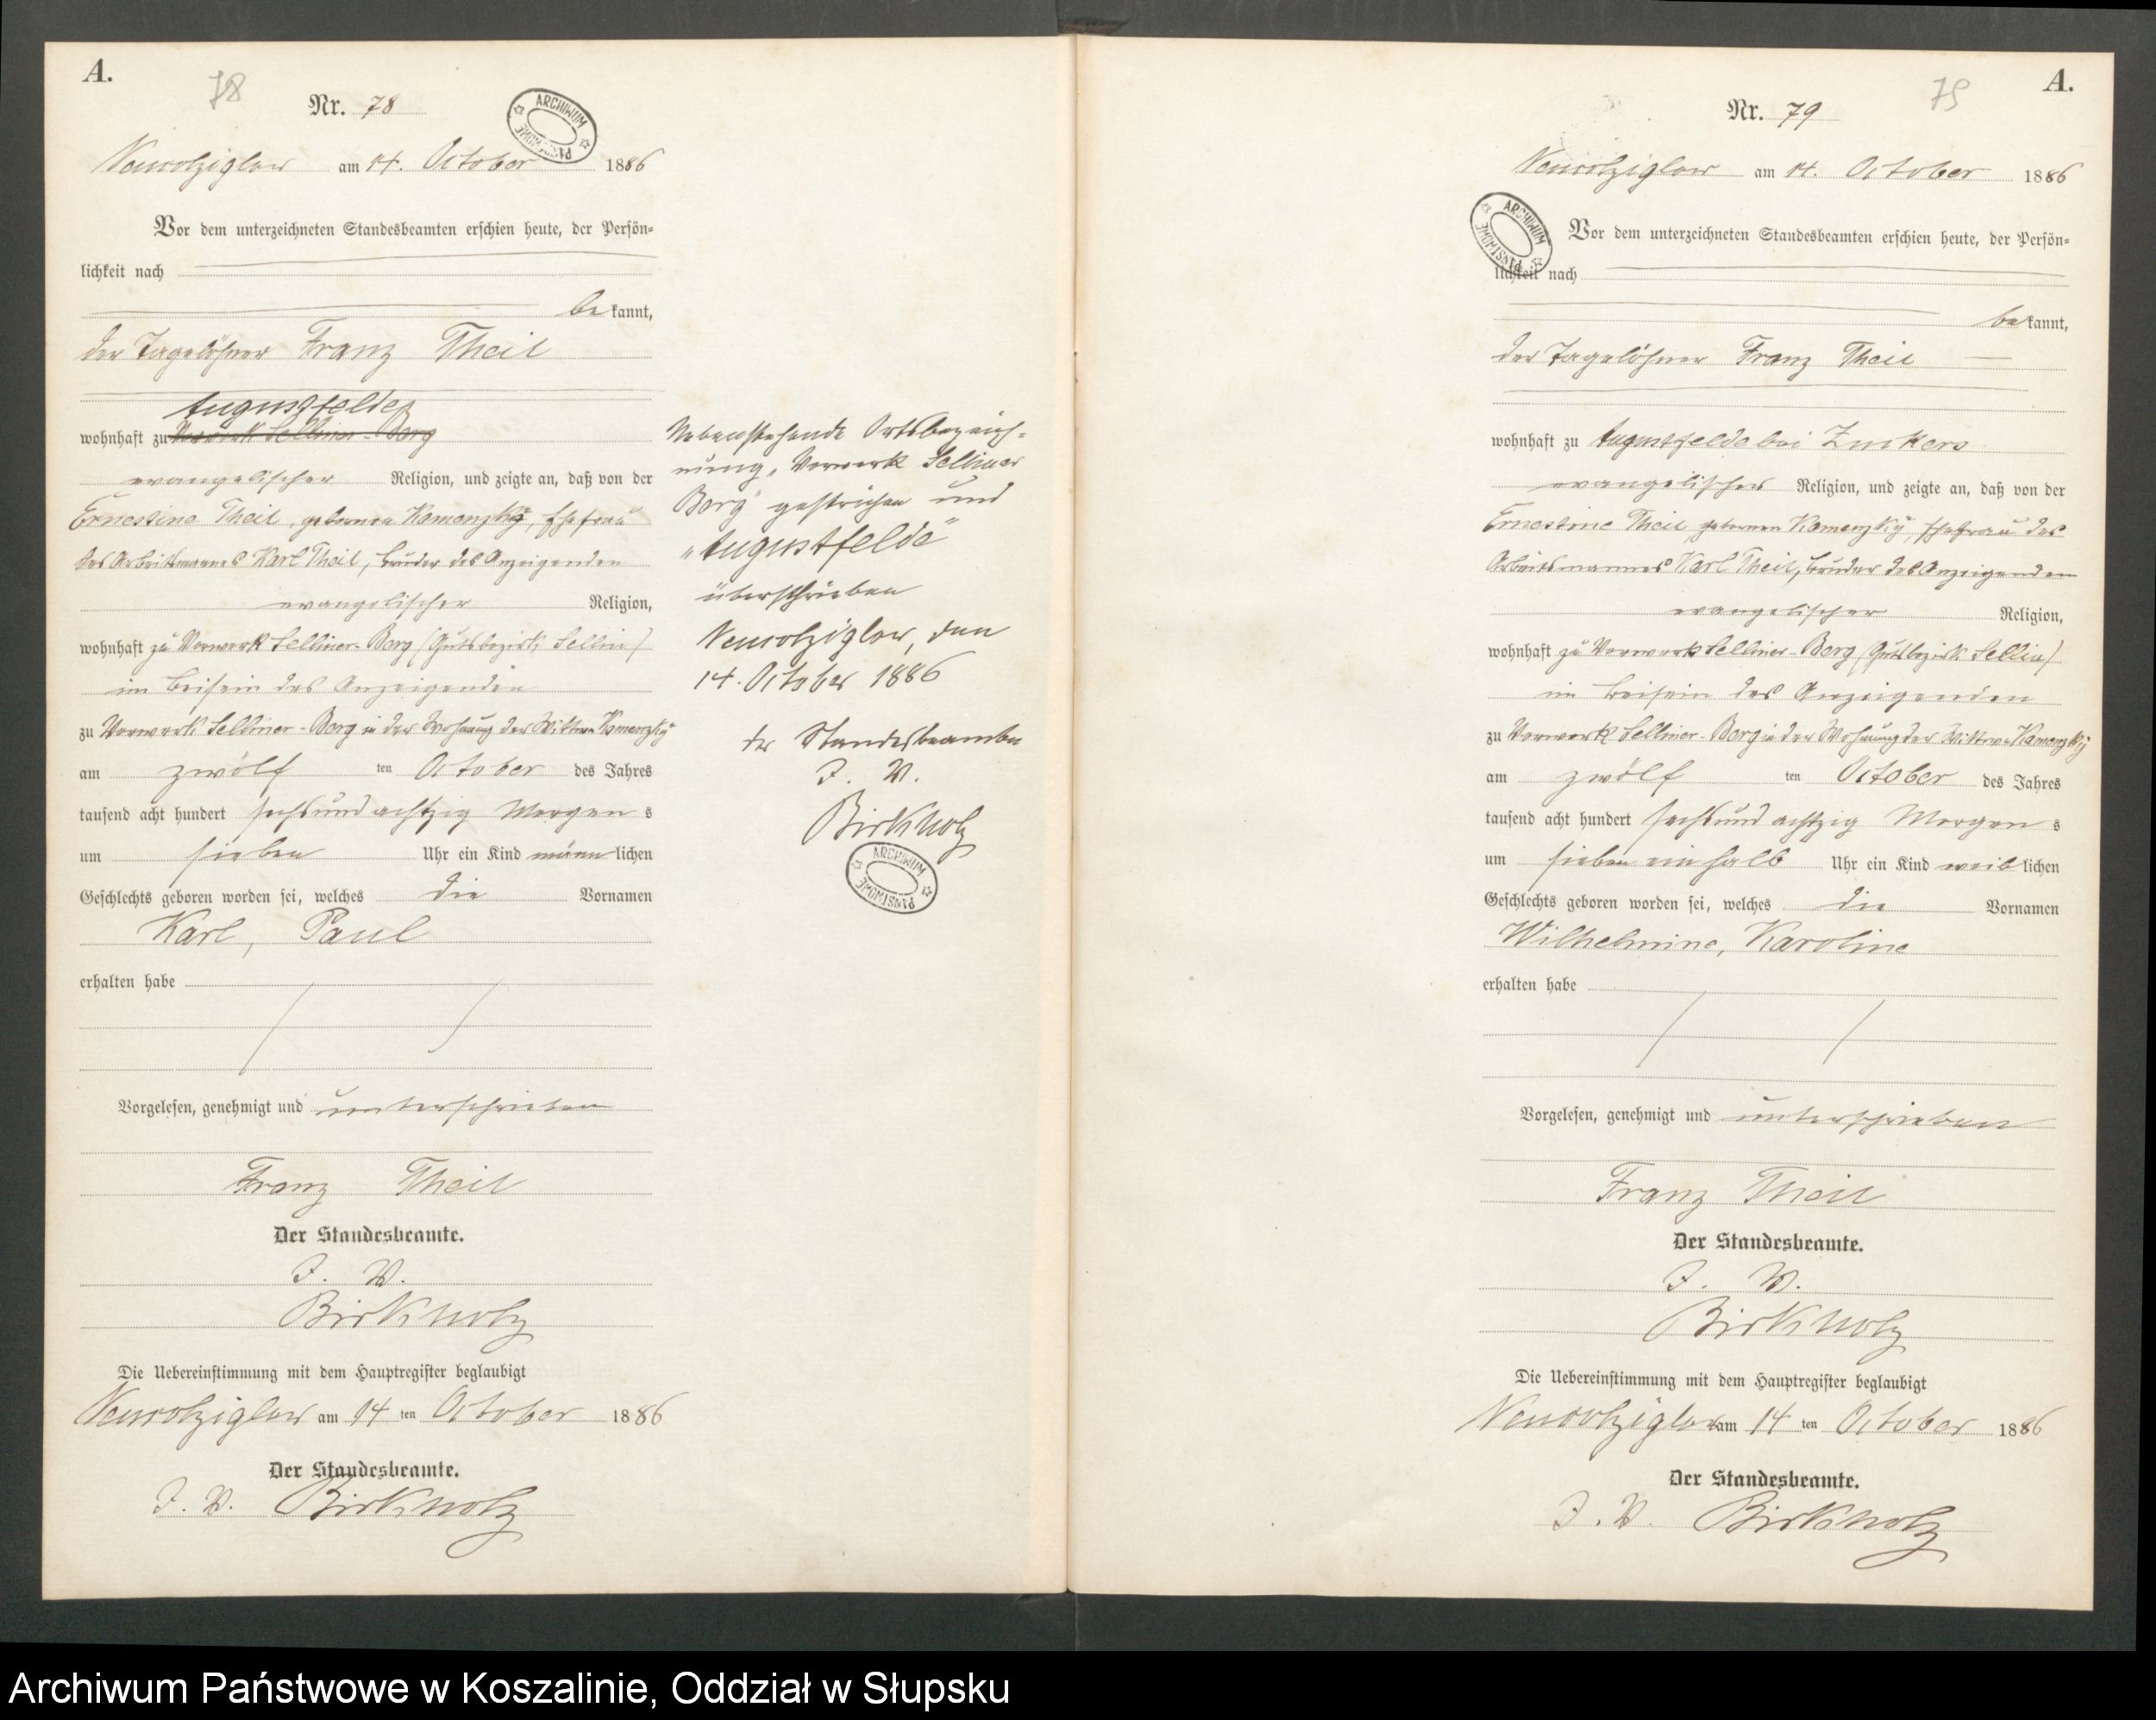 A.
78
Nr. 78
ARCHIWUM PAŃSTWOWE
Neukolziglow am 14. October 1886
Vor dem unterzeichneten Standesbeamten erschien heute, der Persön=
lichkeit nach
be kannt,
der Tagelöhner Franz Theil
Augustfelde
wohnhaft zu Vorwerk Selliner-Berg
evangelischer Religion, und zeigte an, daß von der
Ernestine Theil, geborenen Kamenzky, Ehefrau
des Arbeitsmannes Karl Theil, Bruder des Anzeigenden
evangelischer Religion,
wohnhaft zu Vorwerk Selliner-Berg (Gutsbezirk Sellin)
im Beisein des Anzeigenden
zu Vorwerk Selliner-Berg in der Wohnung der Wittwe Kamenzky
am zwölf ten October des Jahres
tausend acht hundert sechsundachtzig Morgen s
um sieben Uhr ein Kind männ lichen
Geschlechts geboren worden sei, welches die Vornamen
Karl, Paul
erhalten habe
Vorgelesen, genehmigt und unterschrieben
Franz Theil
Der Standesbeamte.
J. V.
Birkholz
Die Uebereinstimmung mit dem Hauptregister beglaubigt
Neukolziglow am 14 ten October 1886
Der Standesbeamte.
J. V. Birkholz
Nebenstehende Ortsbezeich=
nung „Vorwerk Selliner
Berg" gestrichen und
„Augustfelde"
überschrieben
Neukolziglow, den
14. October 1886
der Standesbeamte
J. V.
Birkholz
ARCHIWUM PAŃSTWOWE
A.
79
Nr. 79
Neukolziglow am 14. October 1886
ARCHIWUM PAŃSTWOWE
Vor dem unterzeichneten Standesbeamten erschien heute, der Persön=
lichkeit nach
be kannt,
der Tagelöhner Franz Theil
wohnhaft zu Augustfelde bei Zuckers
evangelischer Religion, und zeigte an, daß von der
Ernestine Theil, geborenen Kamenzky, Ehefrau des
Arbeitsmannes Karl Theil, Bruder des Anzeigenden
evangelischer Religion,
wohnhaft zu Vorwerk Selliner-Berg (Gutsbezirk Sellin)
im Beisein des Anzeigenden
zu Vorwerk Selliner-Berg in der Wohnung der Wittwe Kamenzky
am zwölf ten October des Jahres
tausend acht hundert sechsundachtzig Morgen s
um sieben ein halb Uhr ein Kind weib lichen
Geschlechts geboren worden sei, welches die Vornamen
Wilhelmine, Karoline
erhalten habe
Vorgelesen, genehmigt und unterschrieben
Franz Theil
Der Standesbeamte.
J. V.
Birkholz
Die Uebereinstimmung mit dem Hauptregister beglaubigt
Neukolziglow am 14 ten October 1886
Der Standesbeamte.
J. V. Birkholz
Archiwum Państwowe w Koszalinie, Oddział w Słupsku